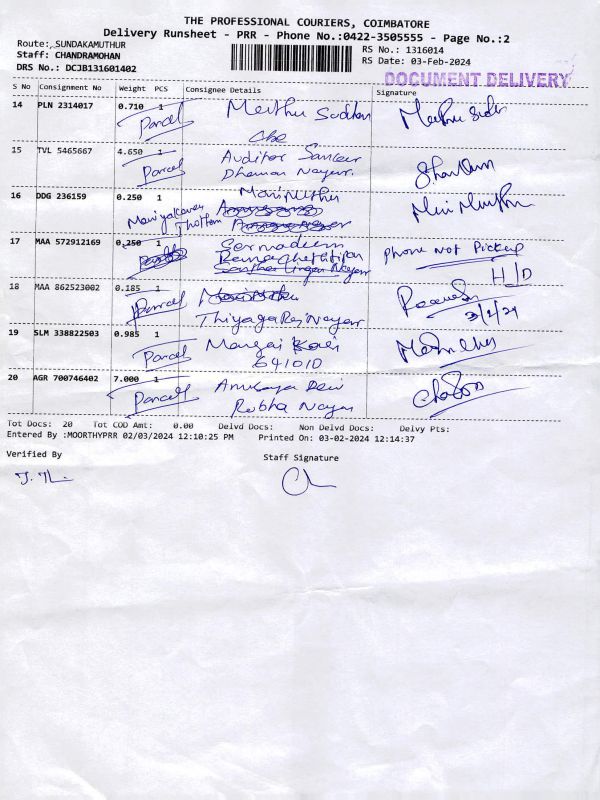 THE PROFESSIONAL COURIERS, COIMBATORE
Delivery Runsheet - PRR - Phone No.:0422-3505555 - Page No.:2
Route: SUNDAKAMUTHUR
RS No.: 1316014
Staff: CHANDRAMOHAN
RS Date: 03-Feb-2024
DRS No.: DCJB131601402
DOCUMENT DELIVERY
S No Consignment No Weight PCS Consignee Details Signature
14 PLN 2314017 0.710 1 Parcel Meethu Sudhan
Cbe
15 TVL 5465667 4.650 1 Parcel Auditor Sankar
Dhamu Nagar.
16 DDG 236159 0.250 1 Marimuthu
Thottam
17 MAA 572912169 0.250 1 phone not Pickup
H/D
18 MAA 862523002 0.185 1 Parcel
ThiyagaRaj Nagar 3/2/24
19 SLM 338822503 0.985 1 Parcel Mangai
641010
20 AGR 700746402 7.000 1 Parcel Anusaya Devi
Rubha Nagar
Tot Docs: 20 Tot COD Amt: 0.00 Delvd Docs: Non Delvd Docs: Delvy Pts:
Entered By :MOORTHYPRR 02/03/2024 12:10:25 PM Printed On: 03-02-2024 12:14:37
Verified By Staff Signature